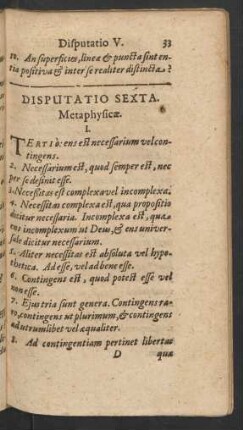 Disputatio V. 33
10. An superficies, lineæ & puncta sint en-
tia positiva & inter se realiter distincta?
DISPUTATIO SEXTA.
Metaphysicæ.
I.
TERTIÒ ens est necessarium vel con-
tingens.
2. Necessarium est, quod semper est, nec
per se desinit esse.
3. Necessitas est complexa vel incomplexa.
4. Necessitas complexa est, qua propositio
dicitur necessaria. Incomplexa est, qua
ens incomplexum ut Deus, & ens univer-
sale dicitur necessarium.
5. Aliter necessitas est absoluta vel hypo-
thetica. Ad esse, vel ad bene esse.
6. Contingens est, quod potest esse vel
non esse.
7. Ejus tria sunt genera. Contingens ra-
ro, contingens ut plurimum, & contingens
ad utrumlibet vel æqualiter.
8. Ad contingentiam pertinet libertas
D quæ